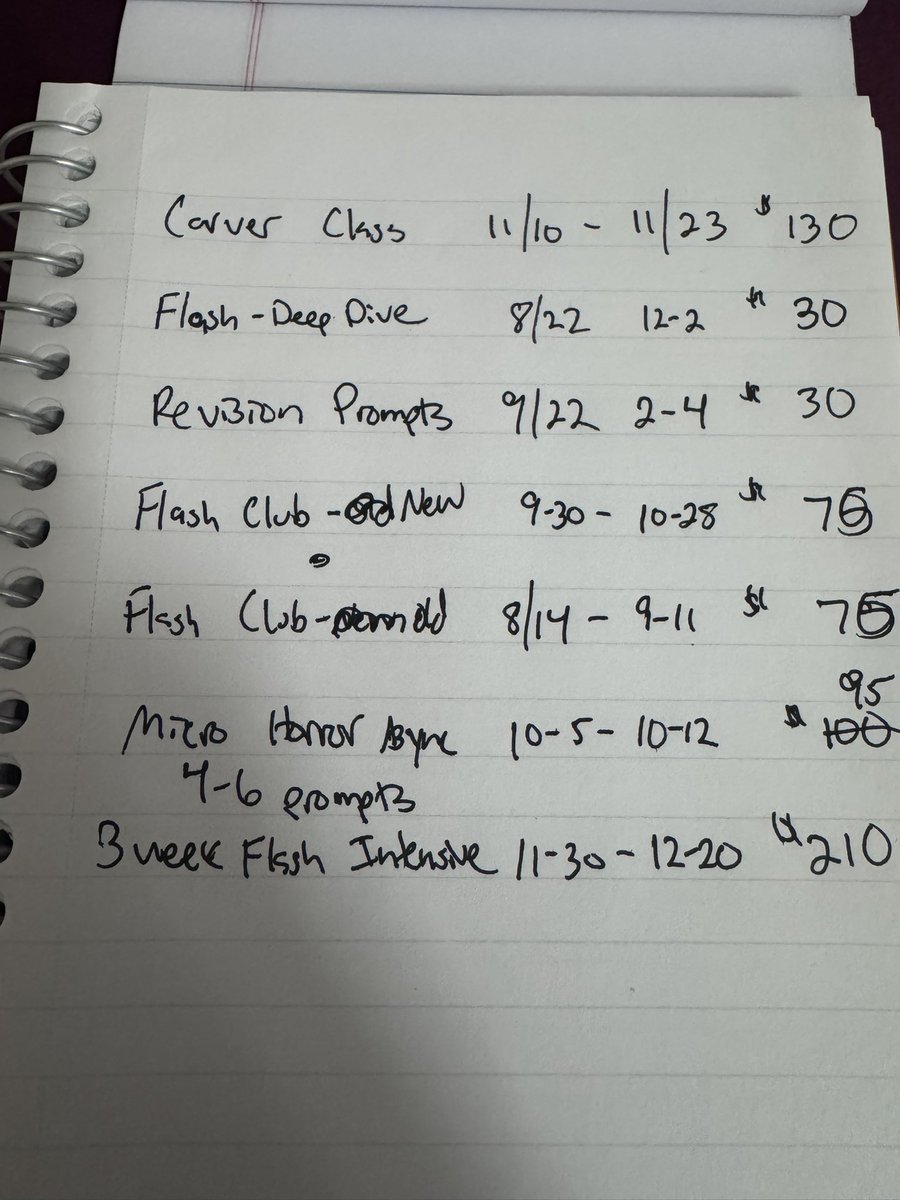 Carver Class 11/10 - 11/23 $130
Flash - Deep Dive 8/22 12-2 $30
Revision Prompts 9/22 2-4 $30
Flash Club - New 9-30 - 10-28 $75
Flash Club - old 8/14 - 9-11 $75
95
Micro Horror Async 10-5 - 10-12 $ 100
4-6 prompts
3 week Flash Intensive 11-30 - 12-20 $210